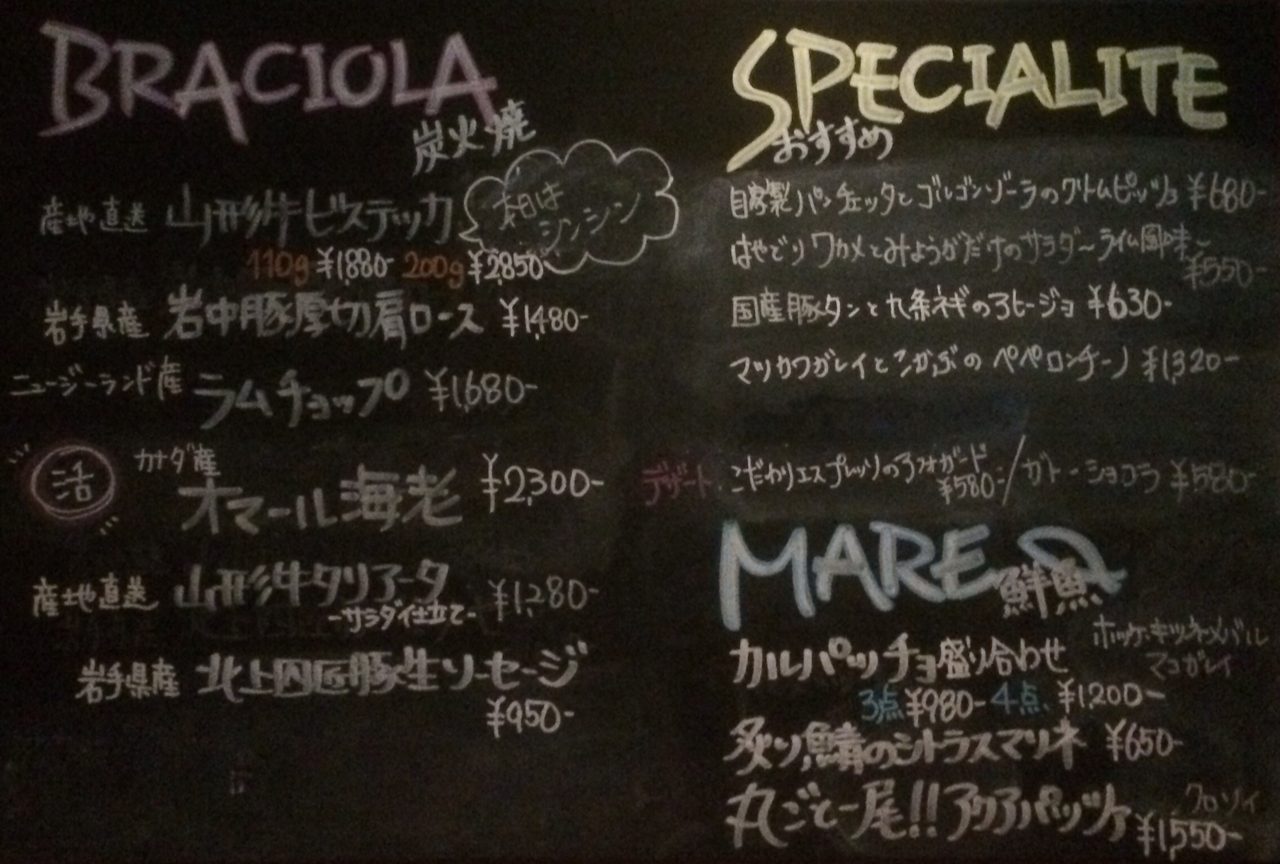 BRACIOLA
炭火焼
産地直送 山形牛ビステッカ
本日は
シンシン
110g ¥1880- 200g ¥2850-
岩手県産 岩中豚厚切肩ロース ¥1480-
ニュージーランド産 ラムチョップ ¥1,680-
活 カナダ産
オマール海老 ¥2,300-
産地直送 山形牛タリアータ ¥1,280-
-サラダ仕立て-
岩手県産 北上四匹豚生ソーセージ
¥950-
SPECIALITE
おすすめ
自家製パンチェッタとゴルゴンゾーラのクアトロピッツァ ¥680-
はやどりワカメとみょうがだけのサラダ〜ライム風味〜
¥550-
国産豚タンと九条ネギのアヒージョ ¥630-
マツカワガレイとこかぶのペペロンチーノ ¥1,320-
デザート こだわりエスプレッソのアフォガード
¥580- / ガトーショコラ ¥580-
MARE
鮮魚
カルパッチョ盛り合わせ
ホッケ・キツネメバル
マコガレイ
3点 ¥980- 4点 ¥1200-
炙り鯖のシトラスマリネ ¥650-
丸ごと一尾!!アクアパッツァ
クロソイ
¥1,550-